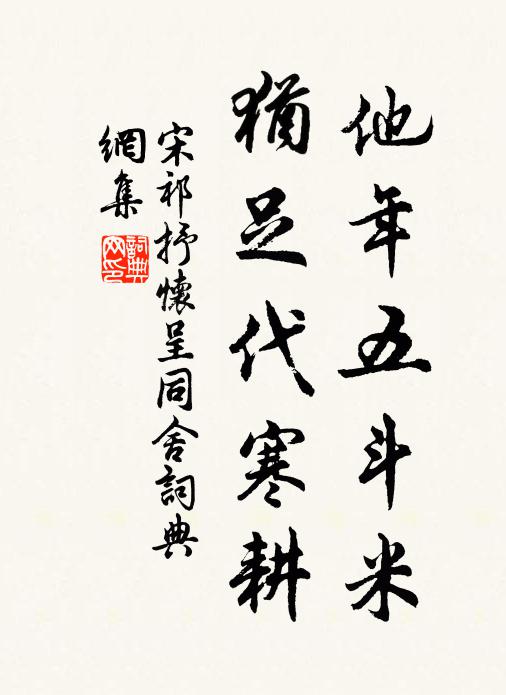 他年五斗米
猶足代寒耕
宋祁抒懷呈同舍詞典
網集
詞典网印